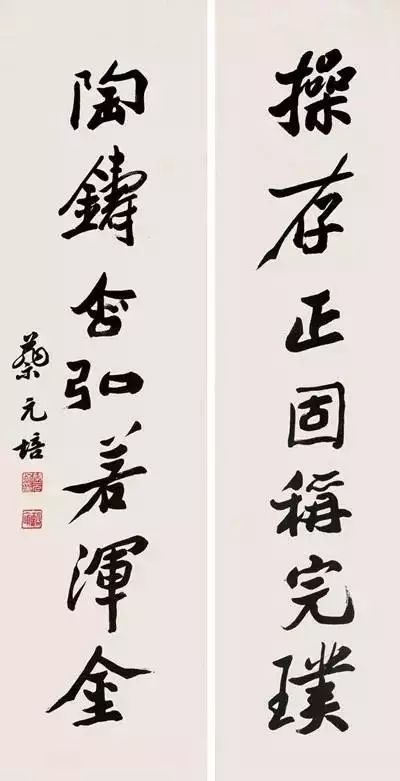 操存正固稱完璞
陶鑄含弘若渾金
蔡元培